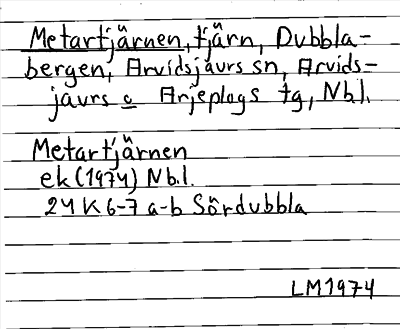 Metartjärnen, tjärn, Dubbla-
bergen, Arvidsjaurs sn, Arvids-
jaurs o Arjeplogs tg, Nb.l.
Metartjärnen
ek (1974) Nb.l.
24 K 6-7 a-b Sördubbla
LM1974